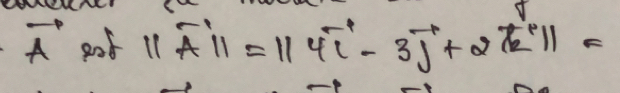 $\vec{A}$ est $\|\vec{A}\| = \|4\vec{i} - 3\vec{j} + 2\vec{k}\| =$